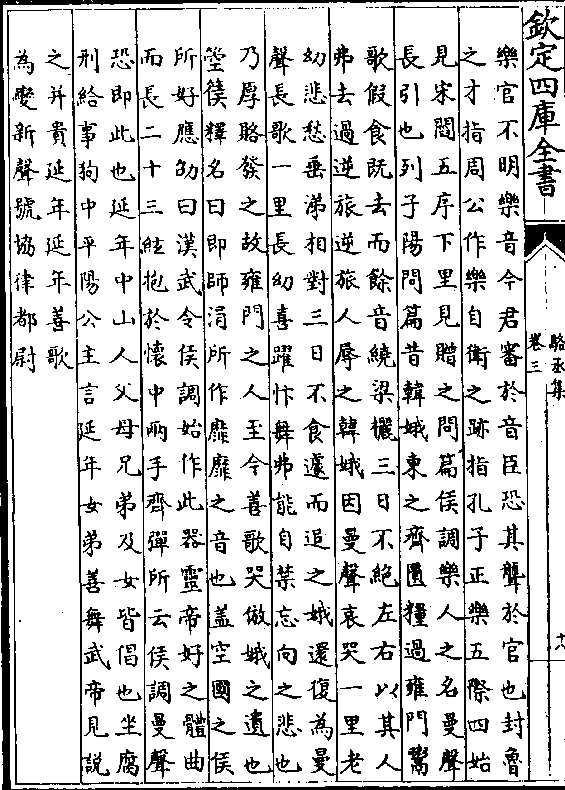 欽定四庫全書
駱丞集
卷三
樂官不明樂音今君審於音臣恐其聾於官也封魯
之才指周公作樂自衛之跡指孔子正樂五際四始
見宋閻五序下里見贈之問篇侯調樂人之名曼聲
長引也列子陽問篇昔韓娥東之齊匱糧過雍門鬻
歌假食既去而餘音繞梁欐三日不絶左右以其人
弗去過逆旅逆旅人辱之韓娥因曼聲哀哭一里老
幼悲愁垂涕相對三日不食遽而追之娥還復為曼
聲長歌一里長幼喜躍忭舞弗能自禁忘向之悲也
乃厚賂發之故雍門之人至今善歌哭倣娥之遺也
箜篌釋名曰即師涓所作靡靡之音也盖空國之侯
所好應劭曰漢武令侯調始作此器靈帝好之體曲
而長二十三絃抱於懷中兩手齊彈所云侯調曼聲
恐即此也延年中山人父母兄弟及女皆倡也坐腐
刑給事狗中平陽公主言延年女弟善舞武帝見說
之并貴延年延年善歌
為變新聲號協律都尉